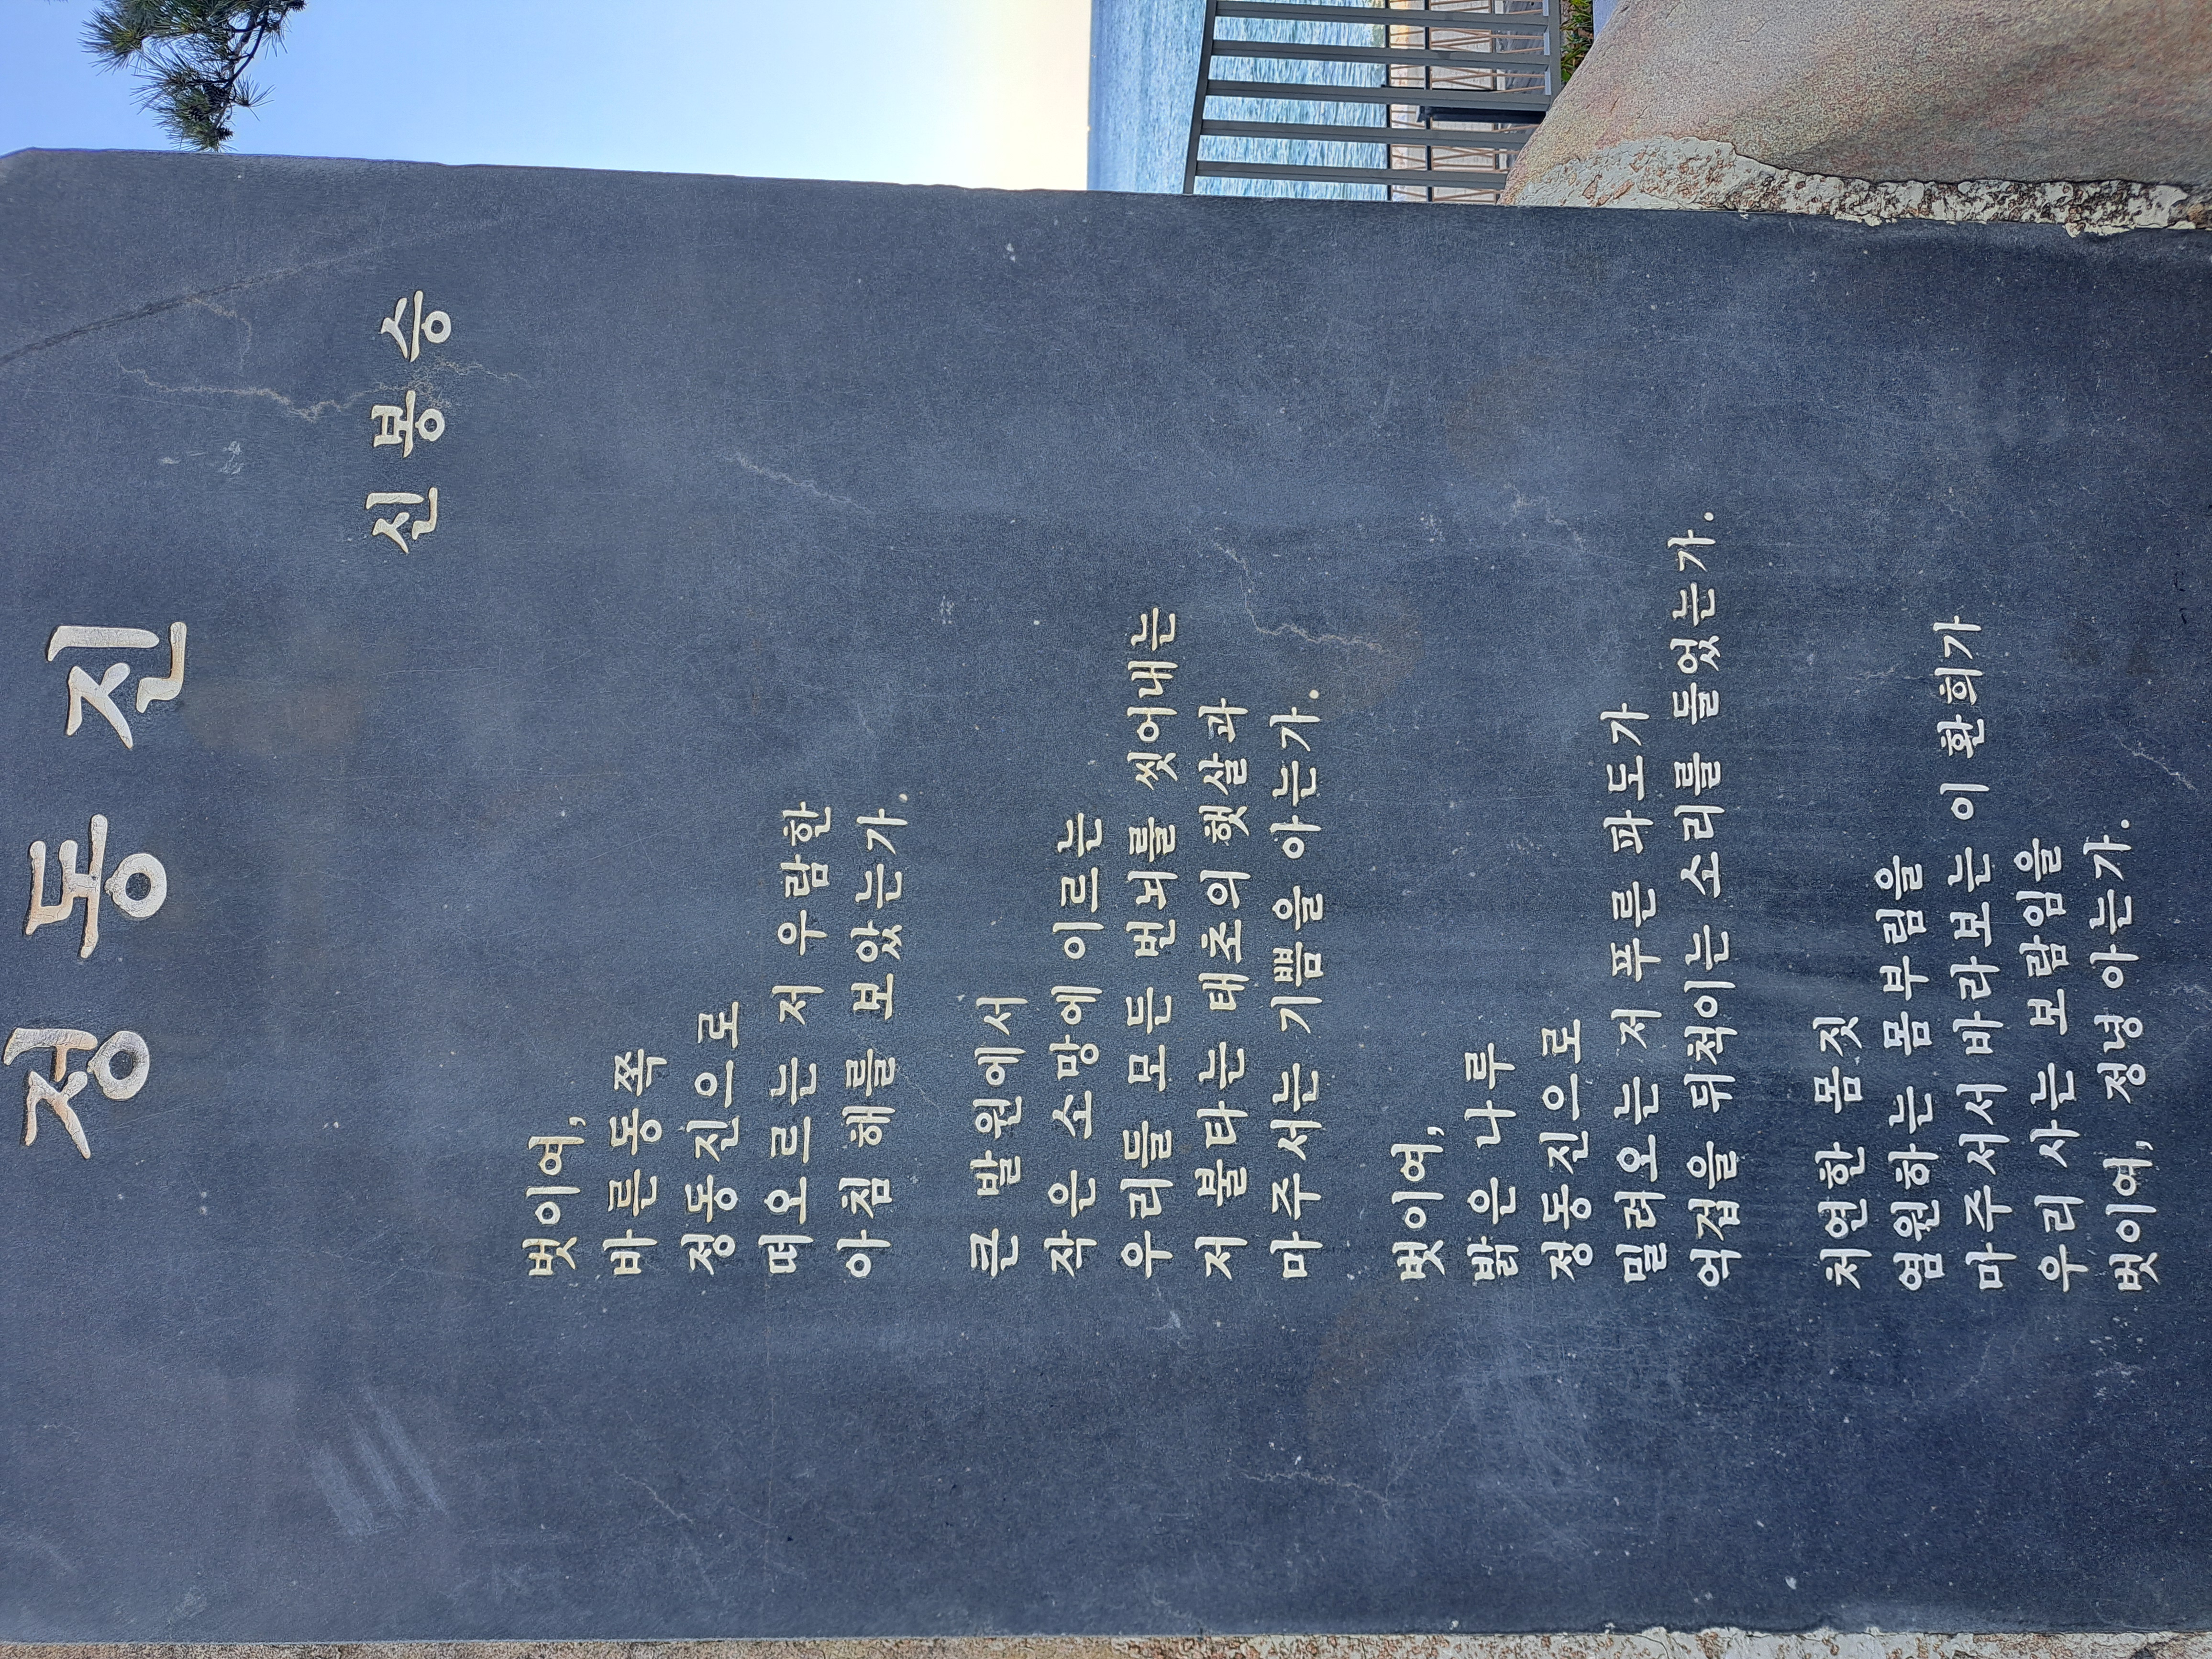 정동진
신봉승
벗이여,
바른동쪽
정동진으로
떠오르는 저 우람한
아침 해를 보았는가.
큰 발원에서
작은 소망에 이르는
우리들 모든 번뇌를 씻어내는
저 불타는 태초의 햇살과
마주서는 기쁨을 아는가.
벗이여,
밝은 나루
정동진으로
밀려오는 저 푸른 파도가
억겁을 뒤척이는 소리를 들었는가.
처연한 몸짓
염원하는 몸부림을
마주서서 바라보는 이 환희가
우리 사는 보람임을
벗이여, 정녕 아는가.